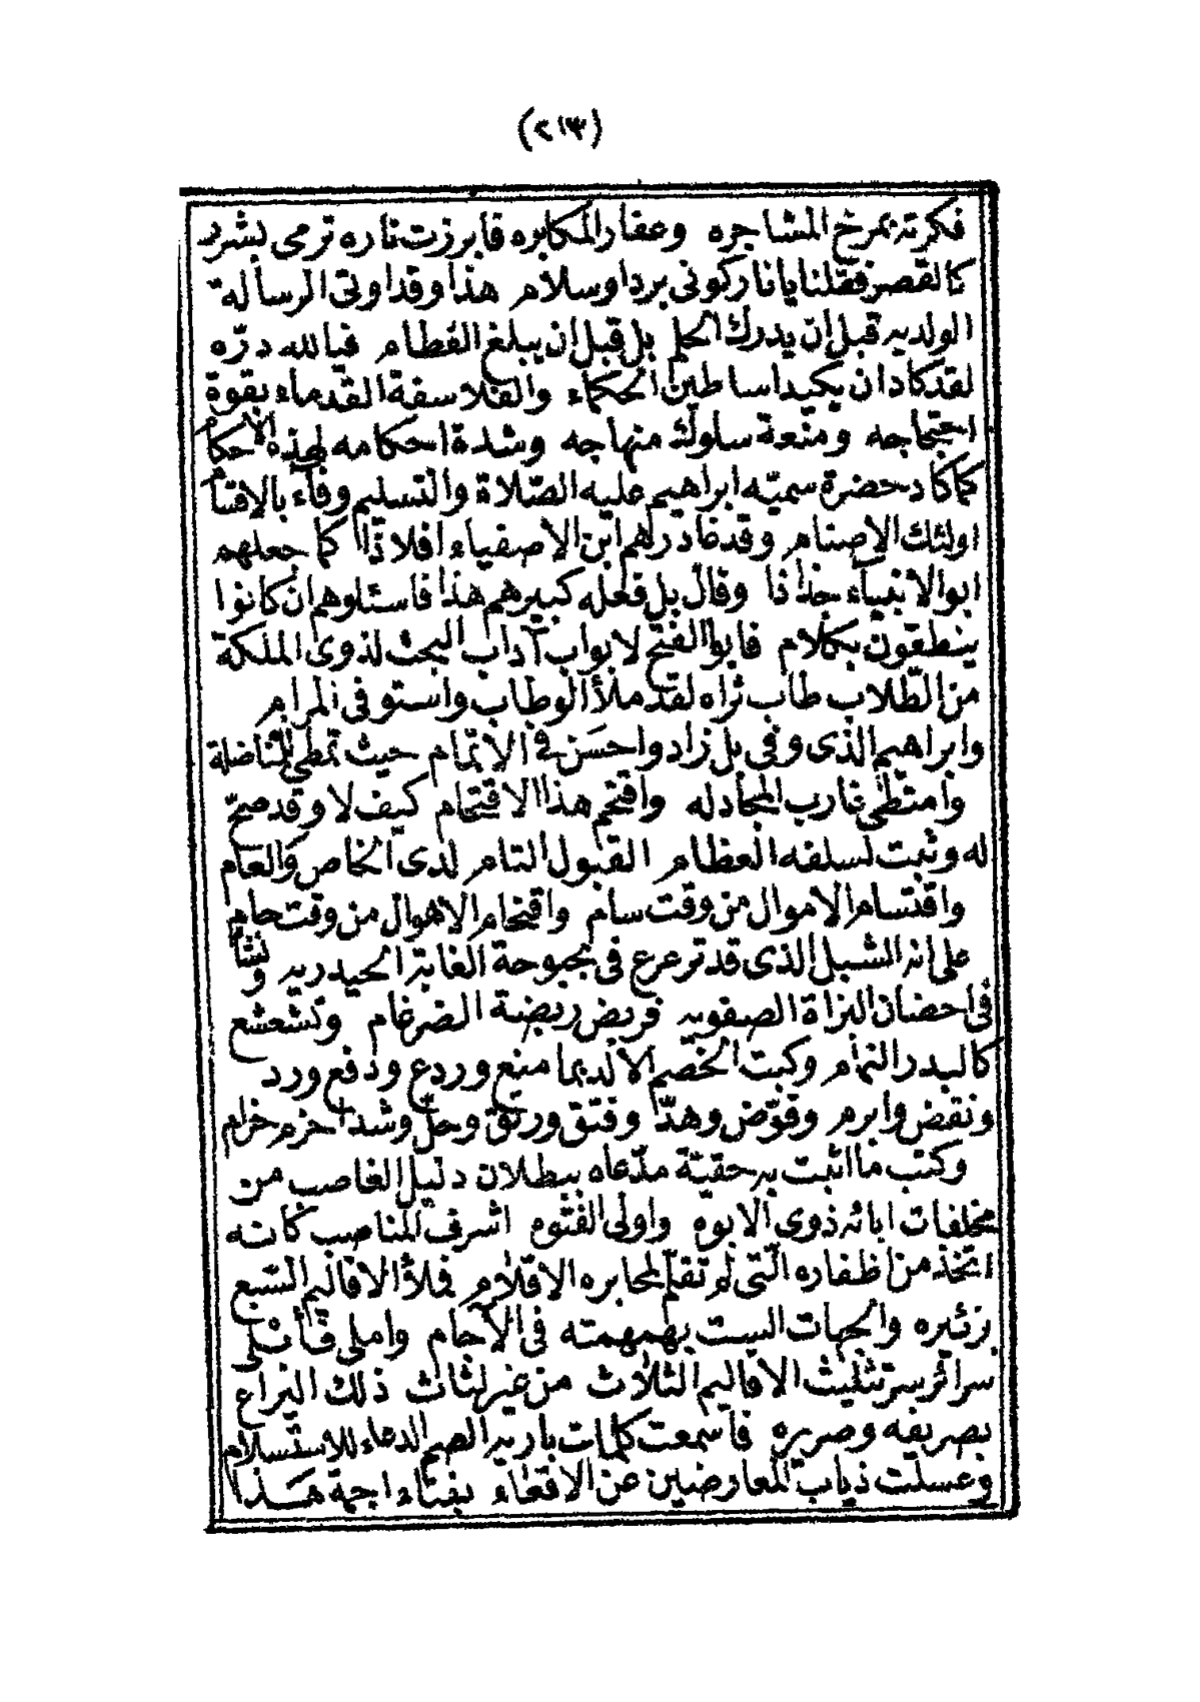 (٢١٣)
فكرته بمرخ المشاجره وعفار المكابره فابرزت ناره ترمى بشرر
كالقصر فقلنا يا نار كونى بردا وسلام هذا وقد اوتى الرساله
الولديه قبل ان يدرك الحلم بل قبل ان يبلغ الفطام فيالله درّه
لقد كاد ان يكيد اساطين الحكماء والفلاسفة القدماء بقوة
احتجاجه ومتعة سلوك منهاجه وشدة احكامه لهذه الاحكام
كما كاد حضرة سميّه ابراهيم عليه الصّلاة والتسليم وفآء بالاقسام
اولئك الاصنام وقد غادرهم ابن الاصفياء افلاذًا كما جعلهم
ابو الانبيآء جذاذا وقال بل فعله كبيرهم هذا فاسئلوهم ان كانوا
ينطقون بكلام فابو الفتح لابواب آداب البحث لذوى الملكة
من الطّلاب طاب ثراه لقد ملأ الوطاب واستوفى المرام
وابراهيم الذى وفى بل زاد واحسَن فى الاتمام حيث تمطى للمناضلة
وامتطى غارب المجادله واقتحم هذا الاقتحام كيف لا وقد صحّ
له وثبت لسلفه العظام القبول التام لدى الخاص والعام
واقتسام الاموال من وقت سام واقتحام الاهوال من وقت حام
على انه الشبل الذى قد ترعرع فى بحبوحة الغابة الحيدريه ونشأ
فى احضان البزاة الصفويه فربض ربضة الضرغام وتشعشع
كالبدر التمام وكبت الخصم الالد بما منع وردع ودفع ورد
ونقض وابرم وقوّض وهدّ وفتق ورتق وحلّ وشد اخزم خزام
وكتب ما اثبت به حقيّة مدّعاه ببطلان دليل الغاصب من
مخلفات ابائه ذوى الابوه واولى الفتوه اشرف المناصب كانه
اتخذ من اظفاره الّتى لم تقلم لمحابره الاقلام فملأ الاقاليم السّبع
بزئيره والجهات الست بهمهمته فى الآجام واملى فأتلى
سرائر سر تثليث الاقاليم الثلاث من غير لثاث ذلك اليراع
بصريفه وصريره فاسمعت كلمات باريه الصم الدعاء للاستسلام
وعسلت ذياب المعارضين عن الاقعاء بفناء اجمة هذا